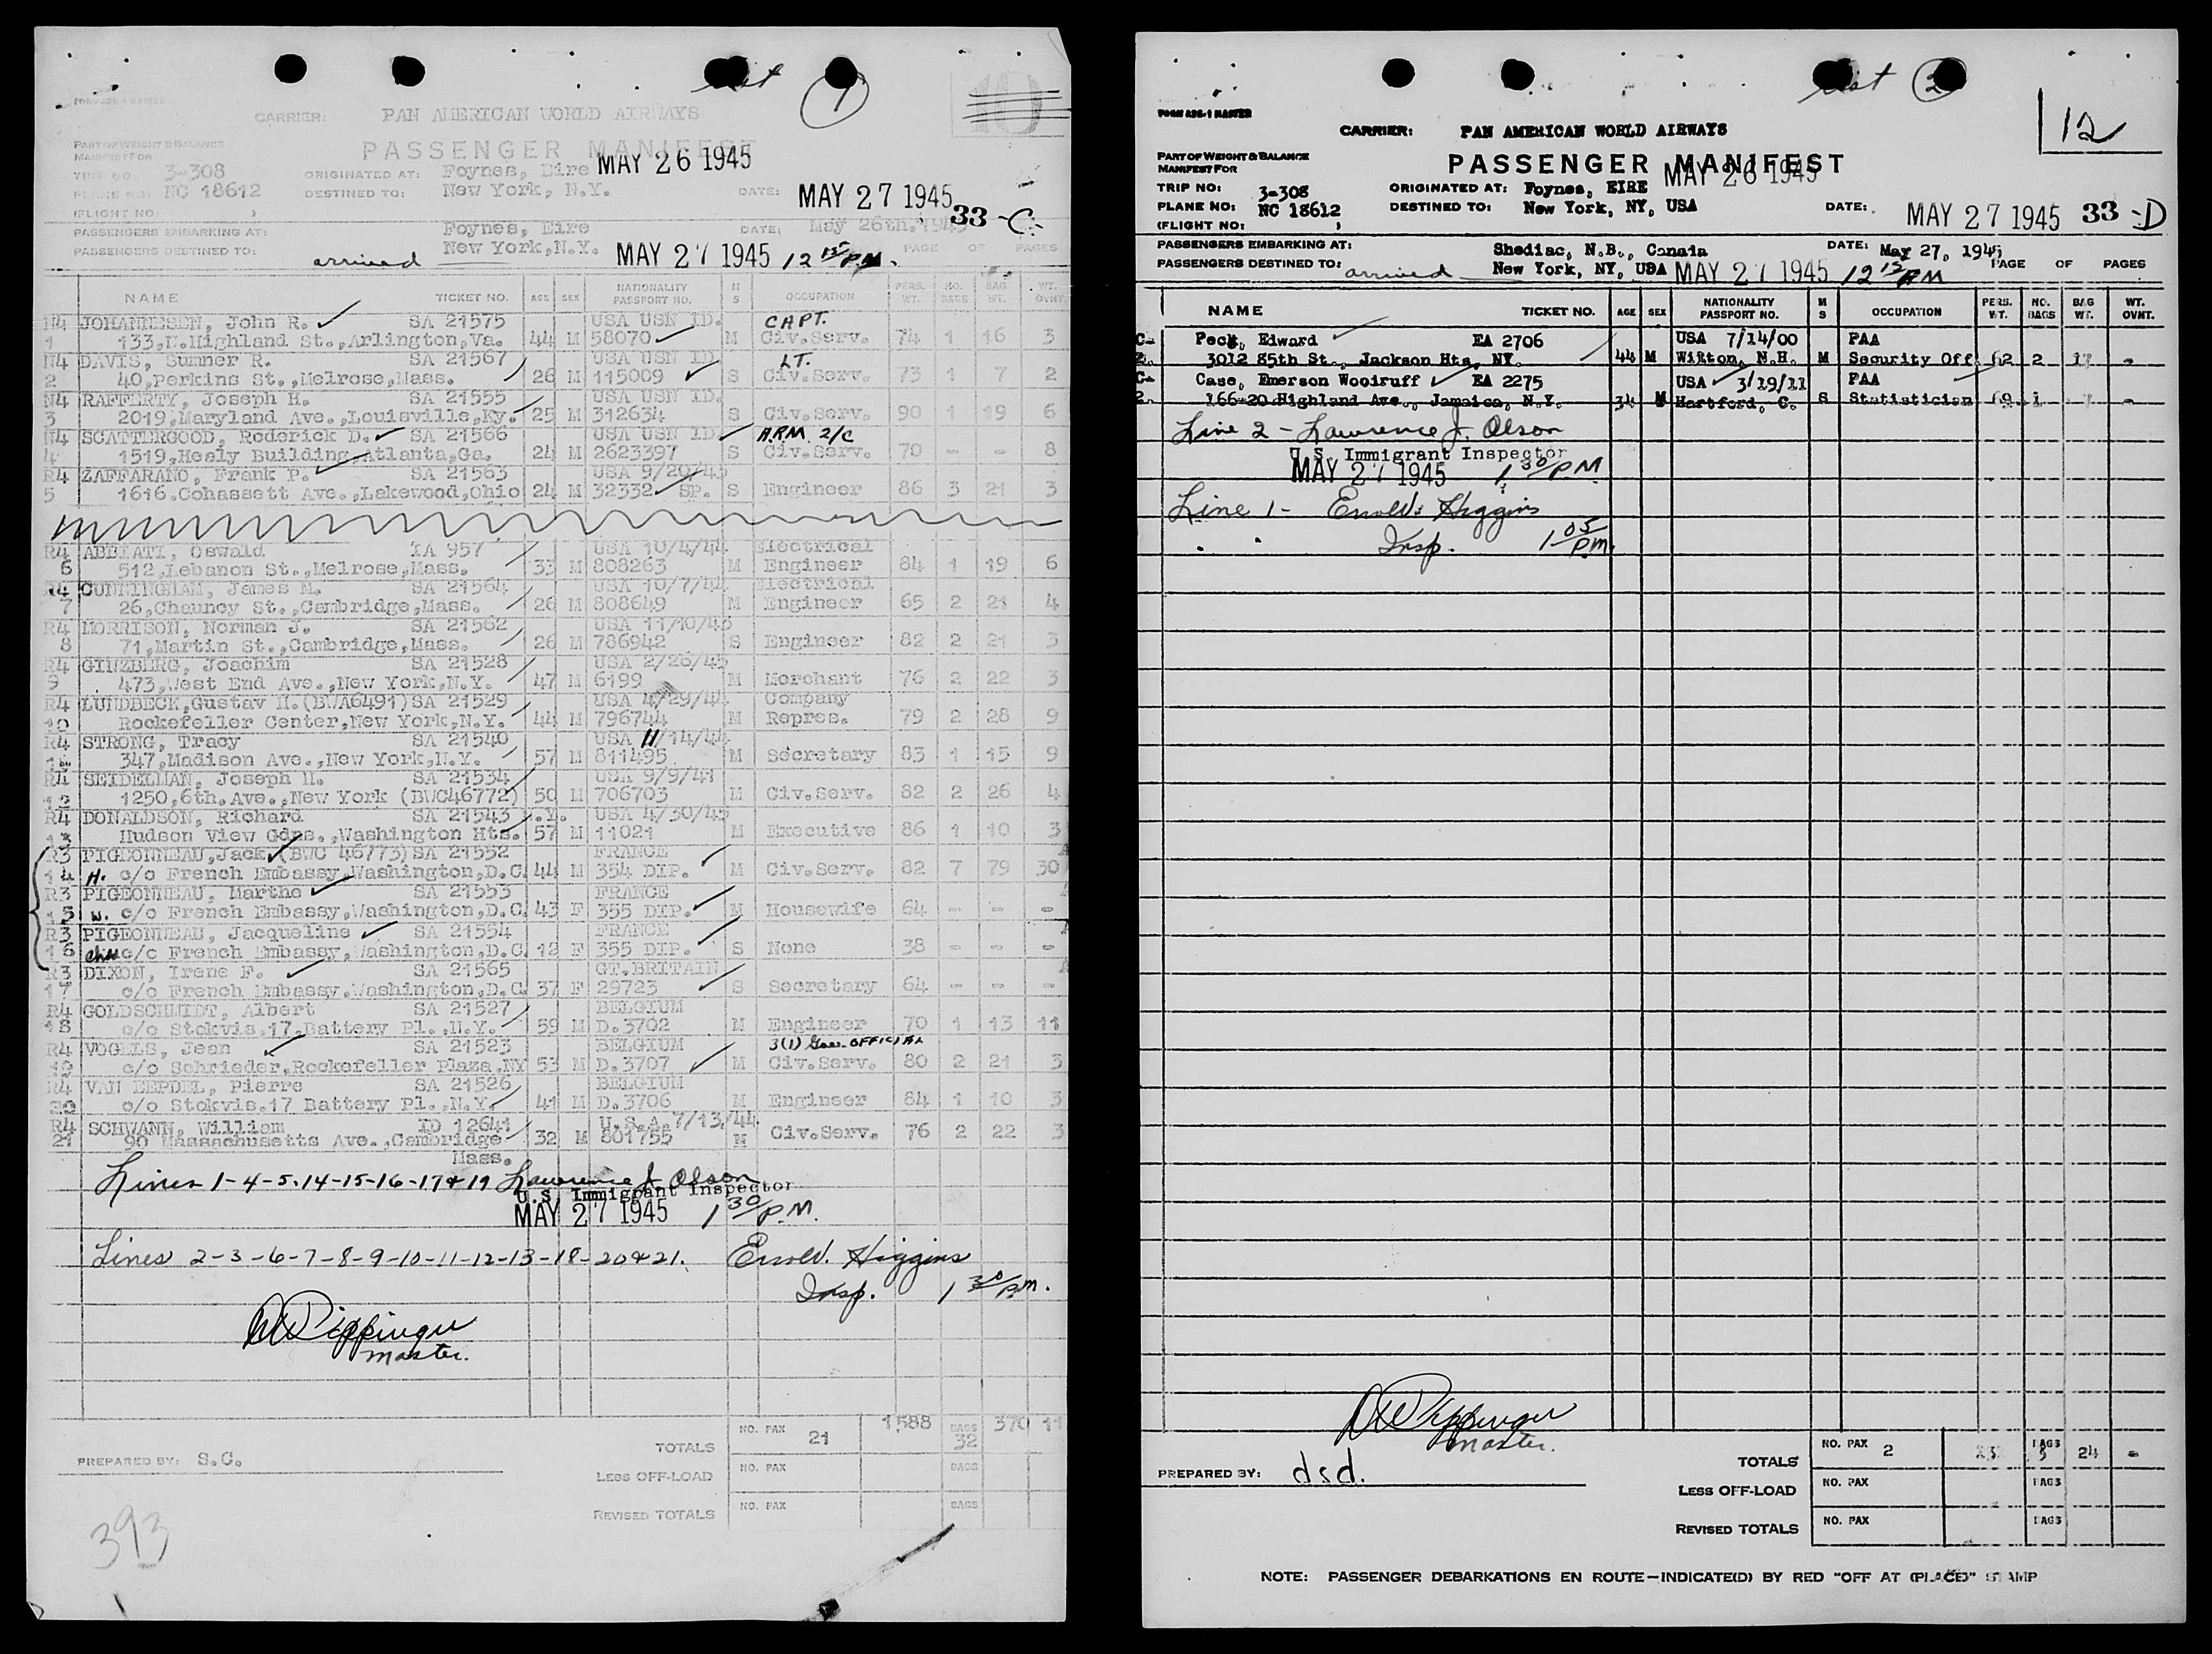 List 1
CARRIER: PAN AMERICAN WORLD AIRWAYS
PART OF WEIGHT & BALANCE
MANIFEST FOR
PASSENGER MANIFEST
MAY 26 1945
TRIP NO: 3-308 ORIGINATED AT: Foynes, Eire
PLANE NO: NC 18612 DESTINED TO: New York, N.Y. DATE: MAY 27 1945
(FLIGHT NO: )
33 -C
PASSENGERS EMBARKING AT: Foynes, Eire DATE: May 26th, 1945
PASSENGERS DESTINED TO: New York, N.Y. PAGE OF PAGES
arrived MAY 27 1945 12 15 PM.
NAME TICKET NO. AGE SEX NATIONALITY PASSPORT NO. M S OCCUPATION PERS. WT. NO. BAGS BAG WT. WT. OVNT.
N4 JOHANNESEN, John R. SA 21575 USA USN ID. CAPT.
1 133,N.Highland St.,Arlington,Va. 44 M 58070 M Civ.Serv. 74 1 16 3
N4 DAVIS, Sumner R. SA 21567 USA USN ID LT.
2 40,Perkins St.,Melrose,Mass. 26 M 115009 S Civ.Serv. 73 1 7 2
N4 RAFFERTY, Joseph H. SA 21555 USA USN ID.
3 2019,Maryland Ave.,Louisville,Ky. 25 M 312634 S Civ.Serv. 90 1 19 6
N4 SCATTERGOOD, Roderick D. SA 21566 USA USN ID A.R.M. 2/C
4 1519,Healy Building,Atlanta,Ga. 24 M 2623397 S Civ.Serv. 70 - - 8
R4 ZAFFARANO, Frank P. SA 21563 USA 9/20/43
5 1616.Cohassett Ave.,Lakewood,Ohio 24 M 32332 SP. S Engineer 86 3 21 3
R4 ABBIATI, Oswald IA 957 USA 10/4/44 Electrical
6 512,Lebanon St.,Melrose,Mass. 33 M 808263 M Engineer 84 1 19 6
R4 CUNNINGHAM, James M. SA 21564 USA 10/7/44 Electrical
7 26,Chauncy St.,Cambridge,Mass. 26 M 808649 M Engineer 65 2 21 4
R4 MORRISON, Norman J. SA 21562 USA 11/10/43
8 71,Martin St.,Cambridge,Mass. 26 M 786942 S Engineer 82 2 21 3
R4 GINZBERG, Joachim SA 21528 USA 2/26/45
9 473,West End Ave.,New York,N.Y. 47 M 6199 M Merchant 76 2 22 3
R4 LUNDBECK,Gustav H.(BWA6491) SA 21529 USA 4/29/44 Company
10 Rockefeller Center,New York,N.Y. 44 M 796744 M Repres. 79 2 28 9
R4 STRONG, Tracy SA 21540 USA 11/14/44
11 347,Madison Ave.,New York,N.Y. 57 M 811495 M Secretary 83 1 15 9
R4 SEIDELMAN, Joseph H. SA 21534 USA 9/9/41
12 1250,6th.Ave.,New York (BWC46772) 50 M 706703 M Civ.Serv. 82 2 26 4
R4 DONALDSON, Richard SA 21543 N.Y. USA 4/30/45
13 Hudson View Gdns.,Washington Hts. 57 M 11021 M Executive 86 1 10 3
R3 PIGEONNEAU,Jack (BWC 46773) SA 21552 FRANCE
14 H. c/o French Embassy,Washington,D.C. 44 M 354 DIP. M Civ.Serv. 82 7 79 30
R3 PIGEONNEAU, Marthe SA 21553 FRANCE
15 w. c/o French Embassy,Washington,D.C. 43 F 355 DIP. M Housewife 64 - - -
R3 PIGEONNEAU, Jacqueline SA 21554 FRANCE
16 c/c French Embassy,Washington,D.C. 12 F 355 DIP. S None 38 - - -
R3 DIXON, Irene F. SA 21565 GT.BRITAIN
17 c/o French Embassy,Washington,D.C. 37 F 29723 S Secretary 64 - - -
R4 GOLDSCHMIDT, Albert SA 21527 BELGIUM
18 c/o Stokvis.17.Battery Pl.,N.Y. 59 M D.3702 M Engineer 70 1 13 11
R4 VOGELS, Jean SA 21523 BELGIUM 3(1) Gov. OFFICIAL
19 c/o Schrieder,Rockefeller Plaza,NY 53 M D.3707 M Civ.Serv. 80 2 21 3
R4 VAN EEPDEL, Pierre SA 21526 BELGIUM
20 c/o Stokvis.17 Battery Pl.,N.Y. 41 M D.3706 M Engineer 84 1 10 3
R4 SCHWANN, William ID 12641 U.S.A. 7/13/44
21 90 Massachusetts Ave.,Cambridge 32 M 801755 M Civ.Serv. 76 2 22 3
Mass.
Lines 1-4-5-14-15-16-17 & 19 Lawrence J. Olson
U.S. Immigrant Inspector
MAY 27 1945 1 30 P.M.
Lines 2-3-6-7-8-9-10-11-12-13-18-20 & 21. Errol V. Higgins
Insp. 1 30 P.M.
master.
TOTALS NO. PAX 21 1588 BAGS 32 370 11
PREPARED BY: S.C.
LESS OFF-LOAD NO. PAX BAGS
REVISED TOTALS NO. PAX BAGS
393
List 2
12
FORM A26-1 MASTER
CARRIER: PAN AMERICAN WORLD AIRWAYS
PART OF WEIGHT & BALANCE
MANIFEST FOR
PASSENGER MANIFEST
MAY 26 1945
TRIP NO: 3-308 ORIGINATED AT: Foynes, EIRE
PLANE NO: NC 18612 DESTINED TO: New York, NY, USA DATE: MAY 27 1945 33 -D
(FLIGHT NO: )
PASSENGERS EMBARKING AT: Shediac, N.B., Canada DATE: May 27, 1945
PASSENGERS DESTINED TO: New York, NY, USA PAGE OF PAGES
arrived MAY 27 1945 12 15 PM
NAME TICKET NO. AGE SEX NATIONALITY PASSPORT NO. M S OCCUPATION PERS. WT. NO. BAGS BAG WT. WT. OVNT.
C- Peck, Edward EA 2706 USA 7/14/00 PAA
3012 85th St., Jackson Hts, NY. 44 M Wilton, N.H. M Security Off 62 2 17 -
C- Case, Emerson Woodruff EA 2275 USA 3/19/11 PAA
2. 166-20 Highland Ave., Jamaica, N.Y. 34 M Hartford, C. S Statistician 69 1 7 -
Line 2 - Lawrence J. Olson
U.S. Immigrant Inspector
MAY 27 1945 1 30 PM
Line 1 - Errol V. Higgins
Insp. 1 05 P.M.
master.
TOTALS NO. PAX 2 BAGS 24 -
PREPARED BY: dsd.
LESS OFF-LOAD NO. PAX BAGS
REVISED TOTALS NO. PAX BAGS
NOTE: PASSENGER DEBARKATIONS EN ROUTE—INDICATE(D) BY RED "OFF AT (PLACE)" STAMP